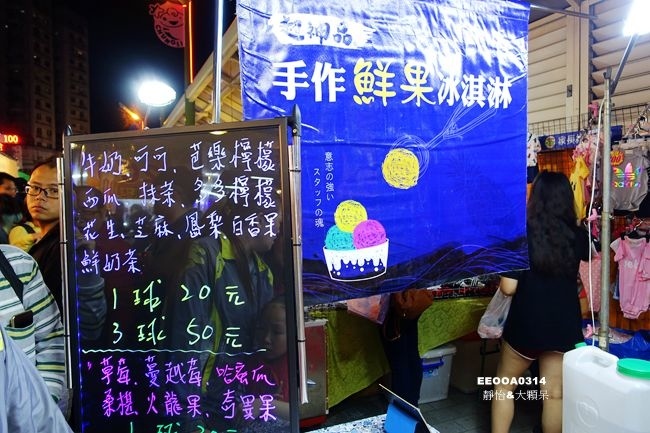 手作鮮果冰淇淋
意志の強い
スタッフの魂
牛奶、可可、芭樂檸檬
西瓜、抹茶、多多檸檬
花生、芝麻、鳳梨百香果
鮮奶茶
1球 20元
3球 50元
草莓、蔓越莓、哈密瓜
桑椹、火龍果、奇異果
100
EEOOA0314
靜怡&大顆呆